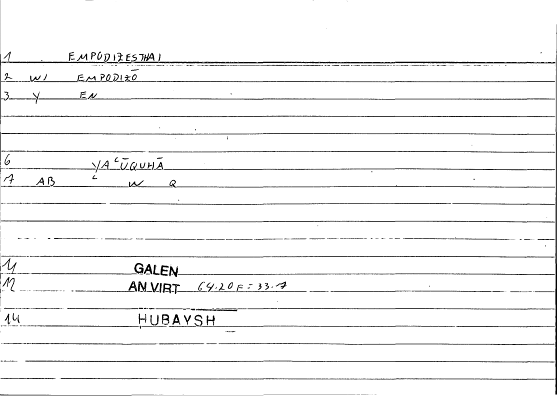 1 EMPODIZESTHAI
2 WJ EMPODIZŌ
3 Y EN
6 YAʿŪQUHĀ
7 AB ʿ W Q
11 GALEN
12 AN.VIRT 64.20 F = 33.7
14 HUBAYSH